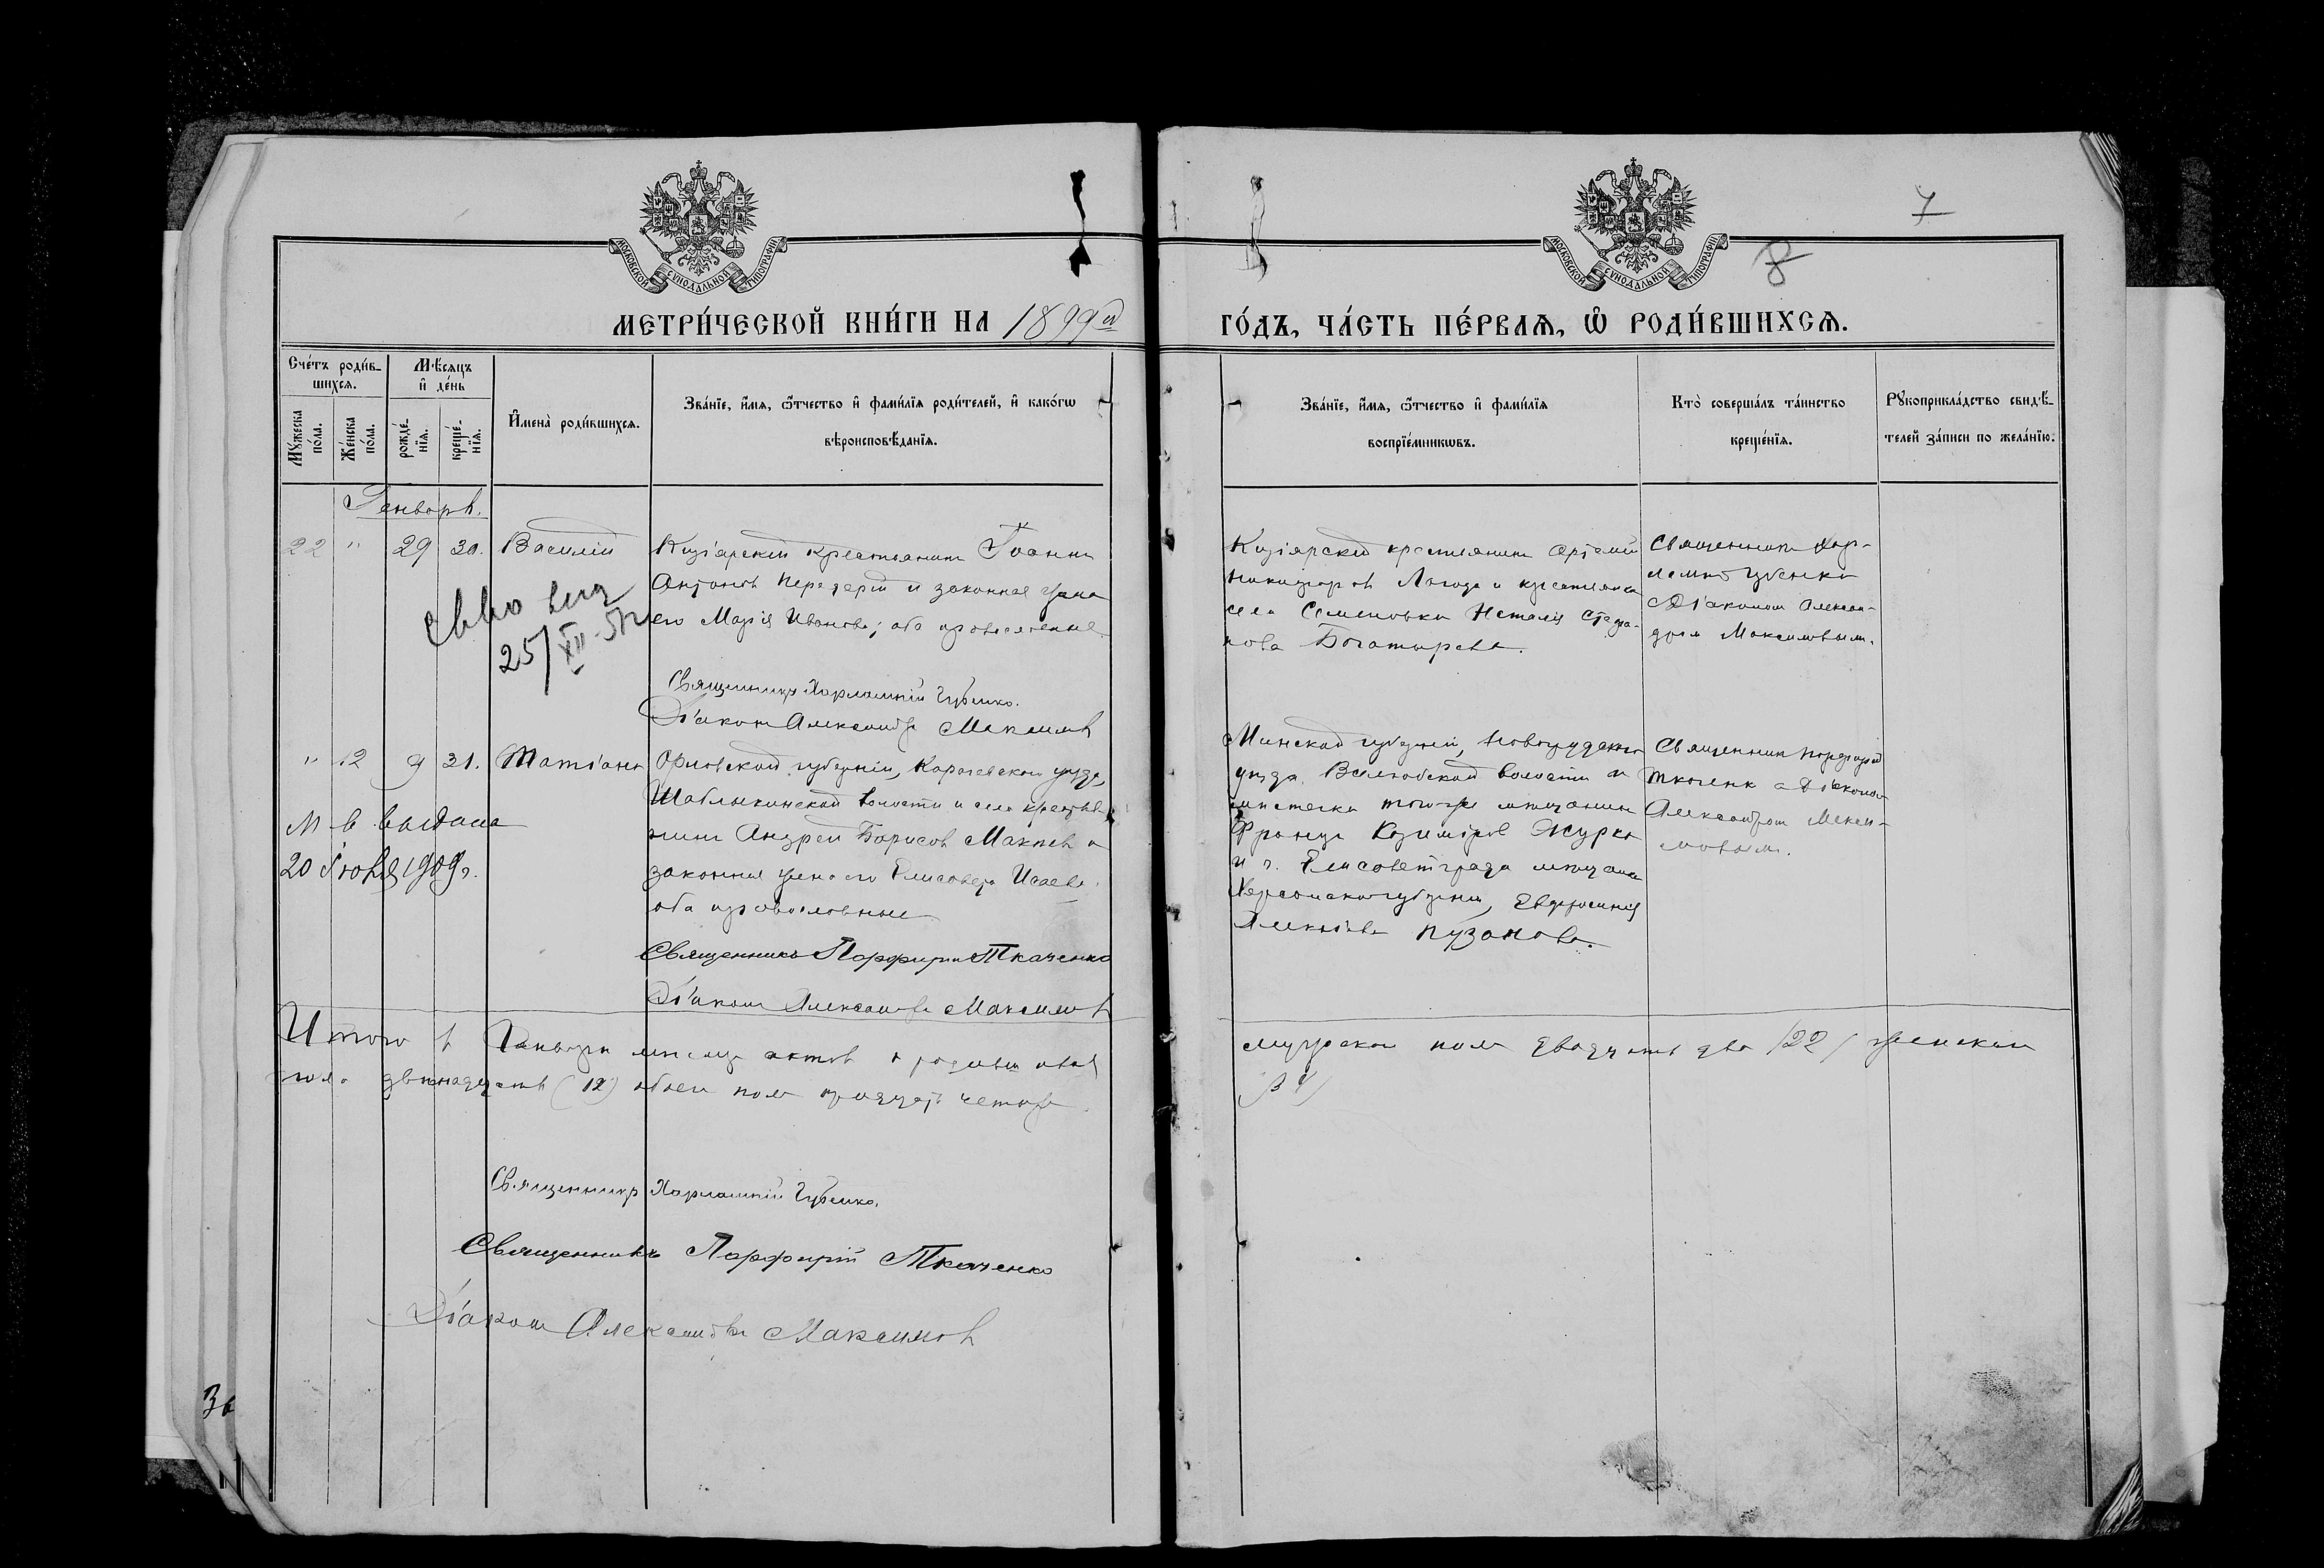 МОСКОВСКОЙ СУНОДАЛЬНОЙ ТИПОГРАФІИ
МОСКОВСКОЙ СУНОДАЛЬНОЙ ТИПОГРАФІИ
7
8
МЕТРИ́ЧЕСКОЙ КНИ́ГИ НА 1899й
ГО́ДЪ, ЧА́СТЬ ПЕ́РВАѦ, Ѡ҆ РОДИ́ВШИХСѦ.
Сче́тъ роди́в-
шихсѧ.
Мꙋ́жеска по́ла.
Же́нска по́ла.
Мѣ́сѧцъ и҆ де́нь
рожде́-нїѧ.
креще́-нїѧ.
И҆мена̀ роди́вшихсѧ.
Зва́нїе, и҆́мѧ, ѻ҆́тчество и҆ фами́лїѧ роди́телей, и҆ како́гѡ
вѣроисповѣ́данїѧ.
Зва́нїе, и҆́мѧ, ѻ҆́тчество и҆ фами́лїѧ
воспрїе́мникѡвъ.
Кто̀ соверша́лъ та́инство
креще́нїѧ.
Рꙋкоприкла́дство свидѣ́-
телей за́писи по жела́нїю.
Генварь.
22 " 29 30. Василій
Кизіарскій крестьянинъ Іоаннъ
Антоновъ и законная жена
его Марія Иванова; оба православные.
25/XII-51
Священникъ Харлампій Губенко.
Діаконъ Александръ Максимовъ
Кизіярскій крестьянинъ Артемій
Никифоровъ Лагода и крестьянка
села Семеновки Наталія Стефа-
нова Богатырева.
Священникъ Хар-
лампій Губенко
съ Діакономъ Алексан-
дромъ Максимовымъ.
" 12 9 31. Татіана
М в выдана
20 Іюня 1909 г.
Орловской губерніи, Карачевскаго уѣзда,
Шаблыкинской волости и села крестья-
нинъ Андрей Борисовъ Макѣевъ и
законная жена его Елисавета Исаева.
оба православные
Священникъ Порфирій Ткаченко
Діаконъ Александръ Максимовъ
Минской губерніи, Новогрудскаго
уѣзда волости и
мѣстечка того-же мѣщанинъ
Францъ Казиміровъ Журко
и г. Елисаветграда мѣщанка
Херсонской губерніи, Евфросинія
Алексѣева Пузанова.
Священникъ Порфирій
Ткаченко съ Діакономъ
Александромъ Макси-
мовымъ.
Итого в Генварѣ мѣсяцѣ актовъ о родившихся
мужескаго пола двадцать два /22/ женскаго
пола двѣнадцать (12) обоего пола тридцать четыре
34/
Священникъ Харлампій Губенко.
Священникъ Порфирій Ткаченко
Діаконъ Александръ Максимовъ